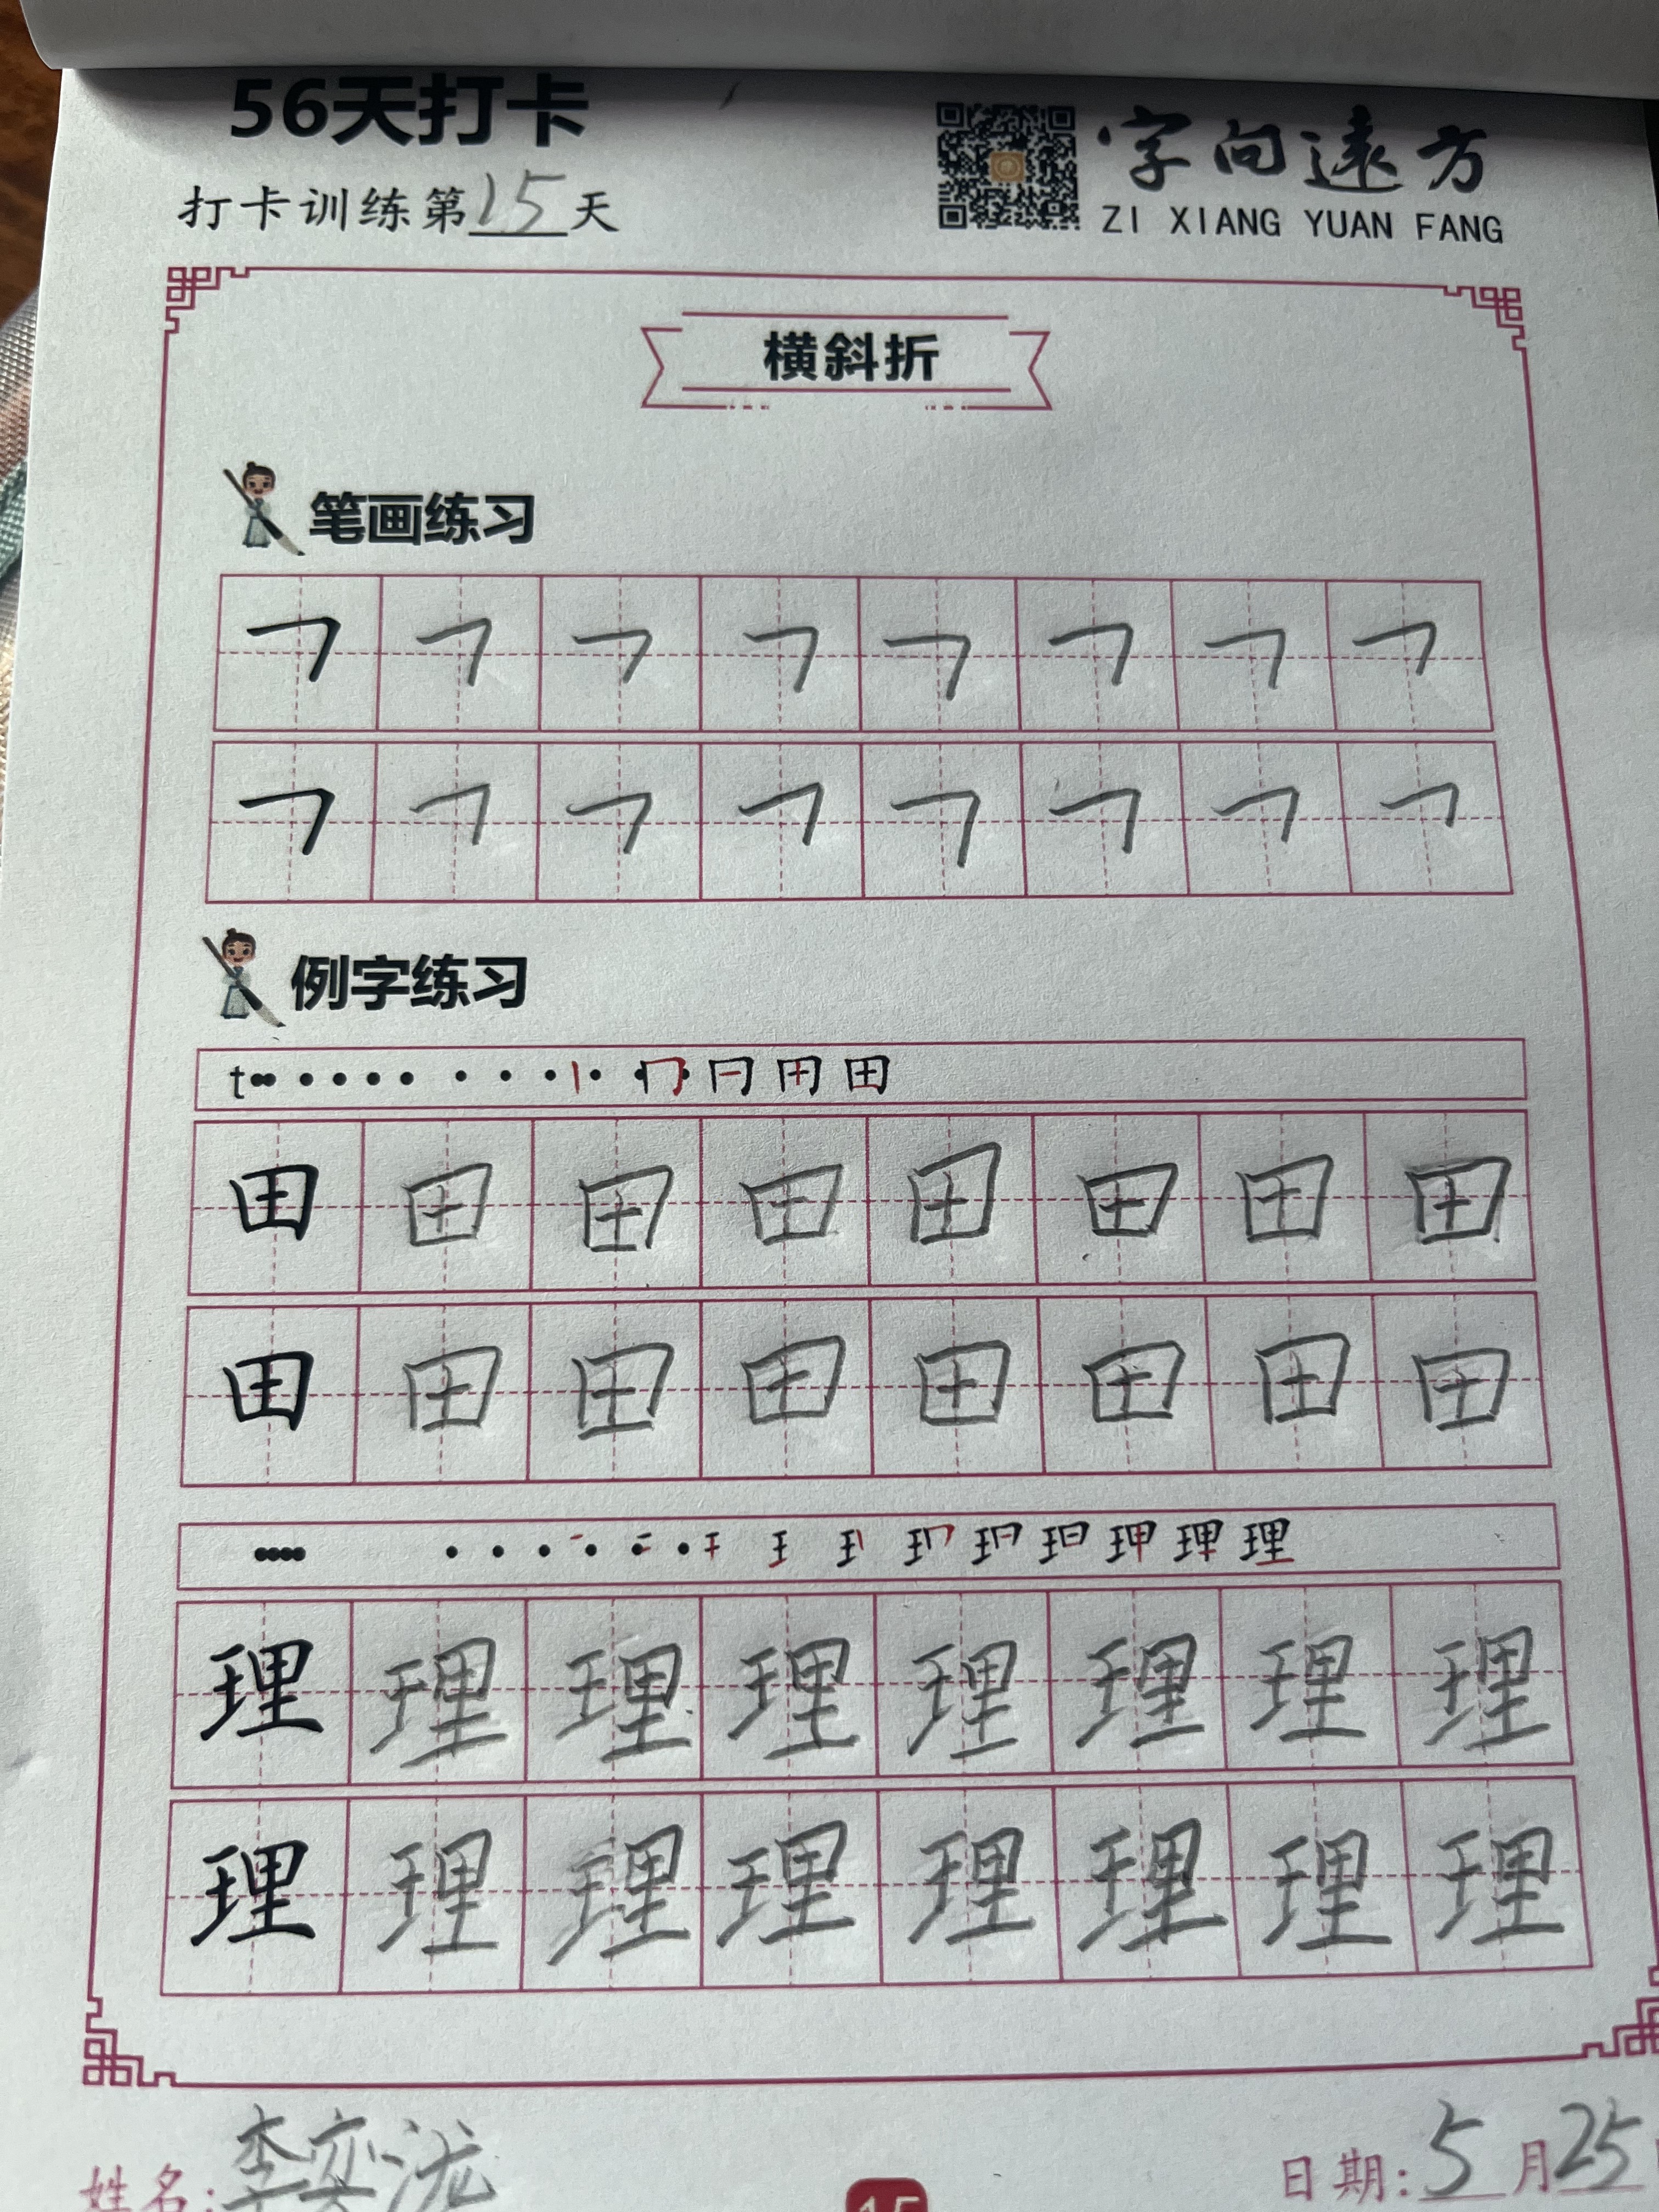 56天打卡
打卡训练第15天
字向远方
ZI XIANG YUAN FANG
横斜折
笔画练习
㇕ ㇕ ㇕ ㇕ ㇕ ㇕ ㇕ ㇕
㇕ ㇕ ㇕ ㇕ ㇕ ㇕ ㇕ ㇕
例字练习
田 田 田 田 田 田 田 田
田 田 田 田 田 田 田 田
理 理 理 理 理 理 理 理
理 理 理 理 理 理 理 理
姓名:李奕泷
日期:5月25
15